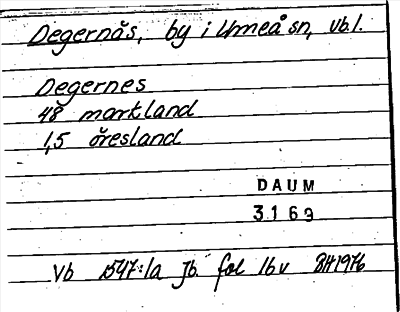 Degernäs, by i Umeå sn, Vb.l.
Degernes
48 markland
1,5 öresland
DAUM
3169
Vb 1547:1a Jb. fol 16v BH1976